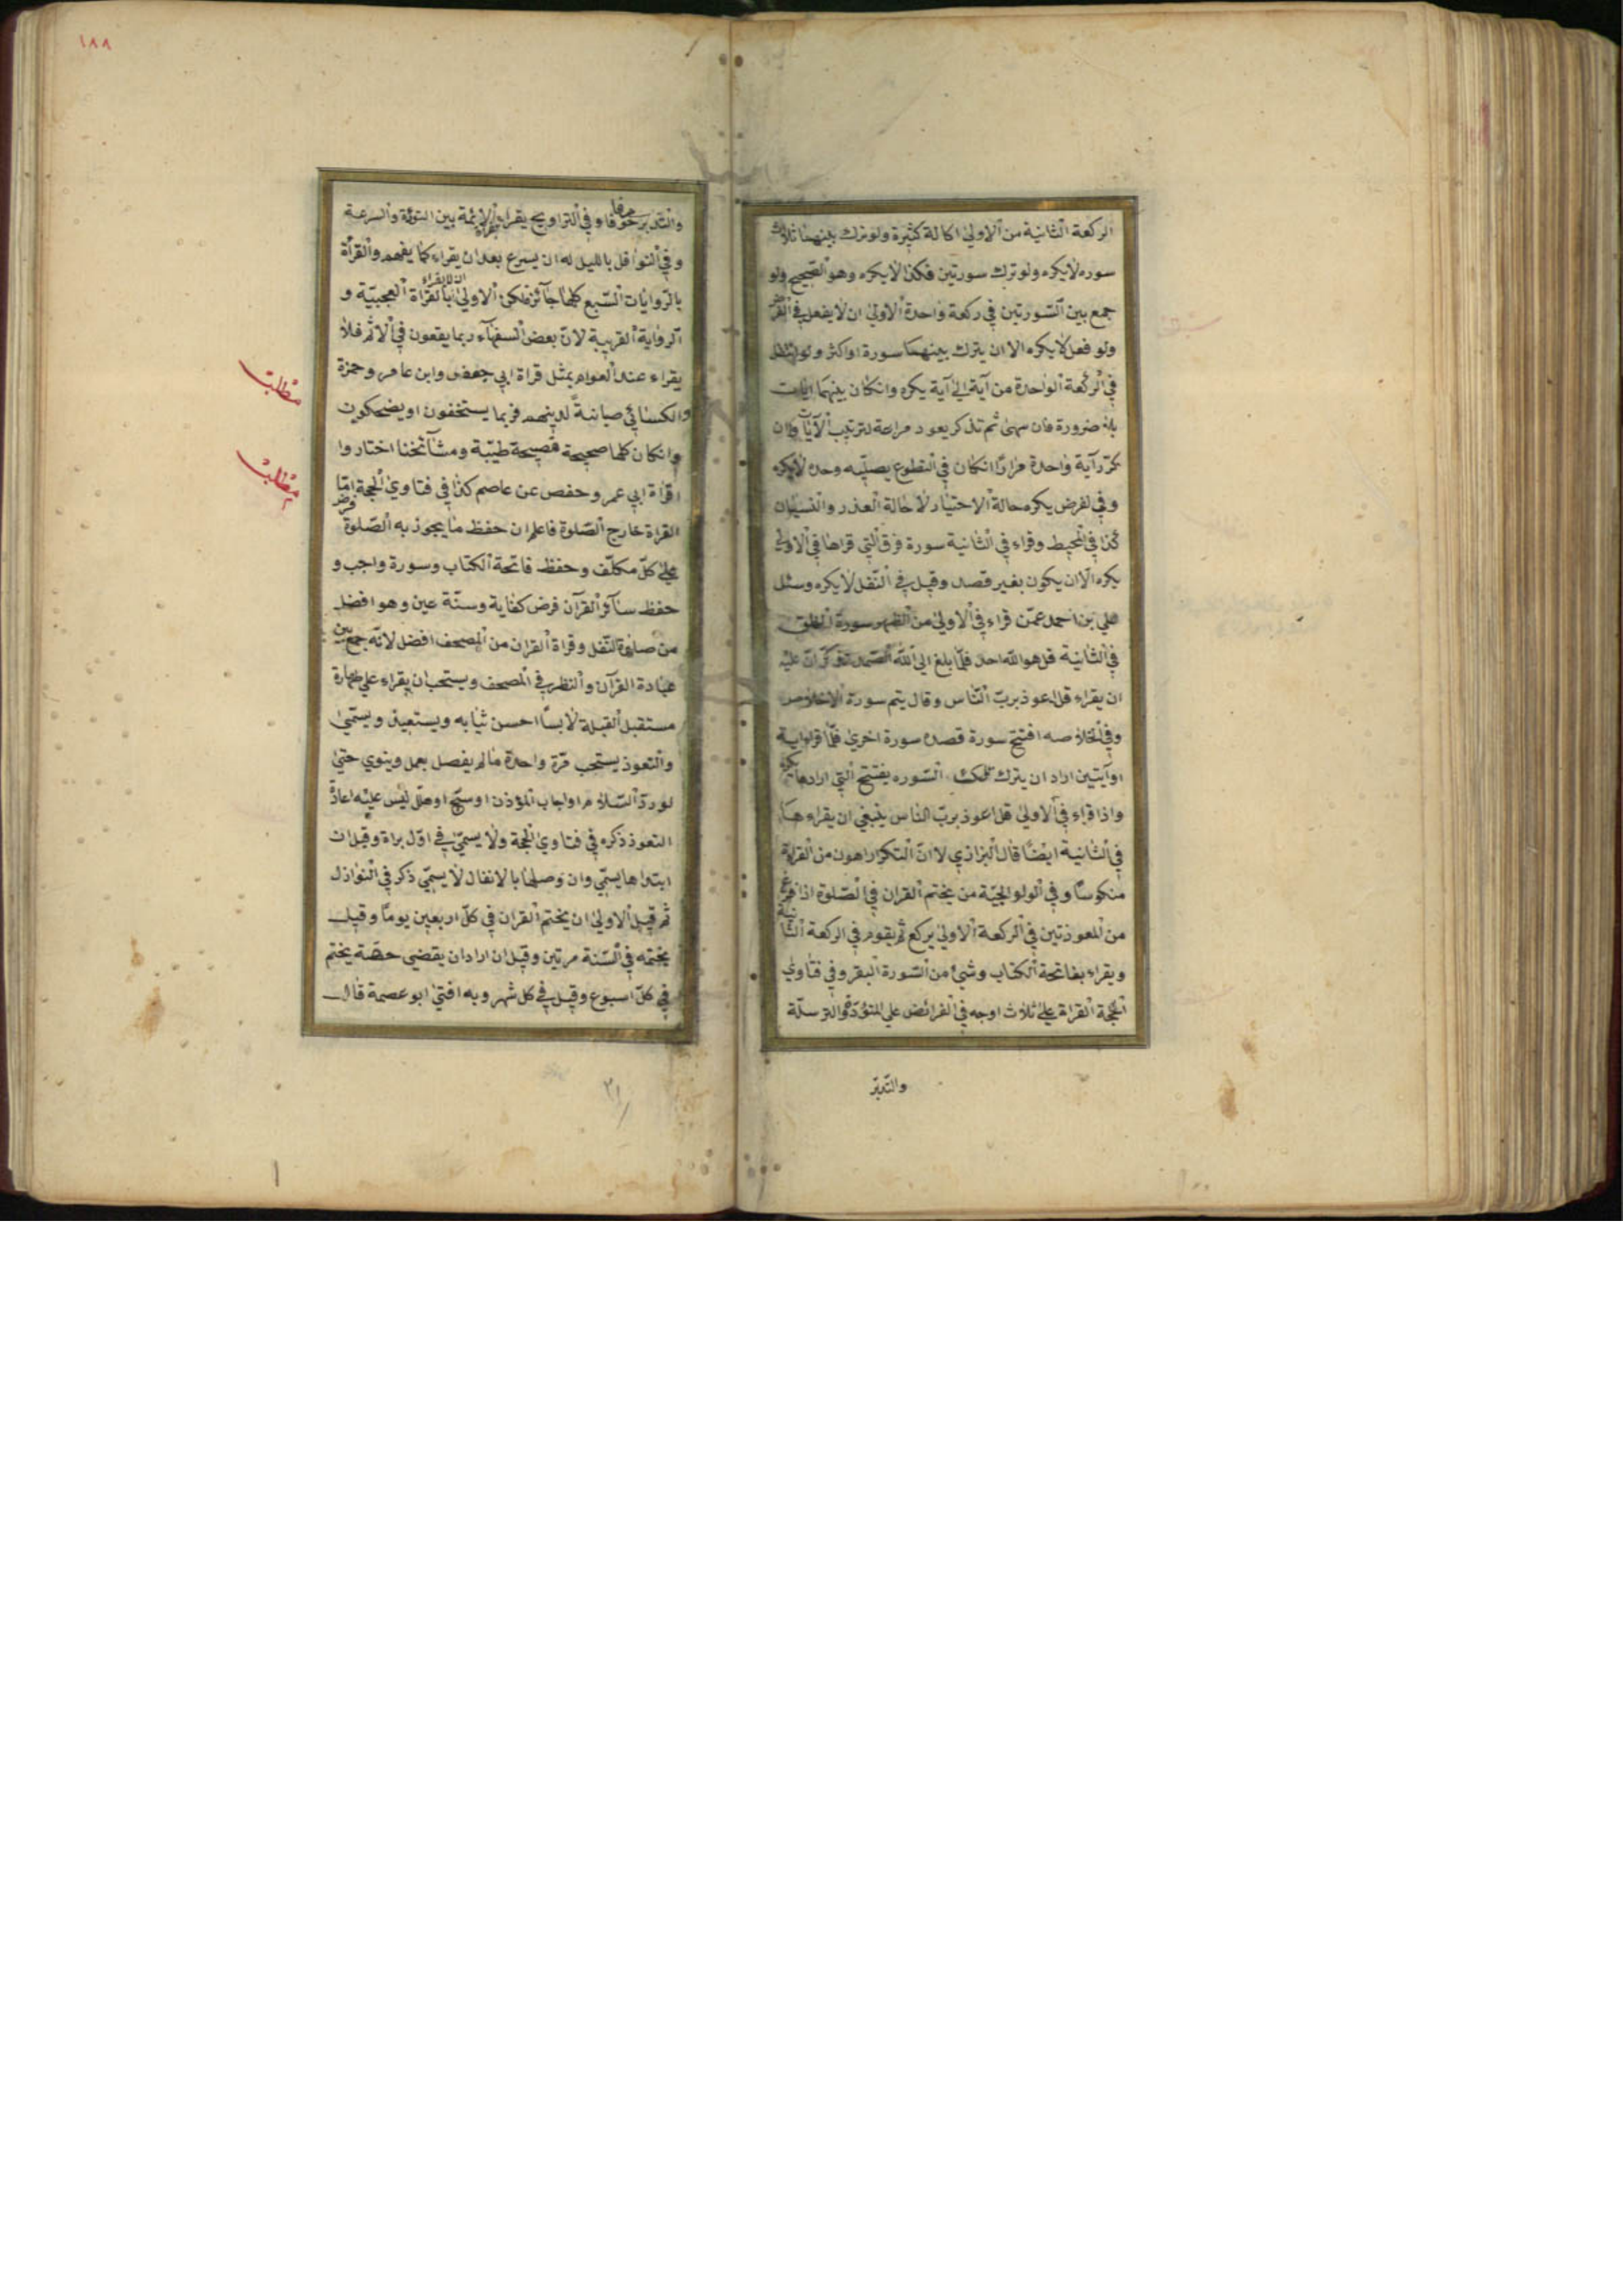 الركعة الثانية من الاولى اطالة كثيرة ولو ترك بينهما ثلاث
سوره لا يكره ولو ترك سورتين فكذا لا يكره وهو الصحيح ولو
جمع بين السّورتين في ركعة واحدة الاولى ان لا يفعل في الفرض
ولو فعل لا يكره الا ان يترك بينهما سورة او اكثر ولو انتقل
في الركعة الواحدة من آية الى آية يكره وانكان بينهما ايات
بلا ضرورة فان سهى ثم تذكر يعود مراعة لترتيب الآيات وان
كرّر آية واحدة مرارًا انكان في التطوع يصلّيه وحده لا يكره
وفي لفرض يكره حالة الاختيار لا حالة العذر والنسيان
كذا في المحيط وقراء في الثانية سورة فوق التي قراها في الاولى
يكره الّا ان يكون بغير قصد وقيل في النّفل لا يكره وسئل
علي بن احمد عمّن قراء في الاولى من الظهر سورة الفلق
في الثانية قل هو الله احد فلمّا بلغ الى الله الصّمد تذكّر انّ عليه
ان يقراء قل اعوذ بربّ النّاس وقال يتم سورة الاخلاص
وفي الخلاصه افتتح سورة قصده سورة اخرى فلمّا قرا اية
او آيتين اراد ان يترك تلك السّوره يفتتح التي ارادها يكره
واذا قراء في الاولى قل اعوذ بربّ الناس ينبغي ان يقراء هـا
في الثانية ايضًا قال البزازي لا انّ التكرار اهون من القراة
منكوسًا وفي الولوالجيّة من يختم القران في الصّلوة اذا فرغ
من المعوذتين في الركعة الاولى يركع ثم يقوم في الركعة الثانية
ويقراء بفاتحة الكتاب وشئ من السّورة البقر وفي فتاوى
الحجّة القراة على ثلاث اوجه في الفرائض على التؤدة والترسلّة
والتّدبّر
١٨٨
والتّدبر حرفا حرفا وفي التراويح يقراء الائمة بين التودة والسرعة
وفي النوافل بالليل له ان يسرع بعد ان يقراء كما يفهم والقراة
بالرّوايات السّبع كلها جآئزة لكن الاولى ان لا يقراء بالقراة العجبيّة و
الرواية الغريبة لانّ بعض السفهآء ربما يقعون في الاثم فلا
يقراء عند العوام بمثل قراة ابي جعفر وابن عامر وحمزة
والكسائي صيانةً لدينهم فربما يستخفون او يضحكون
وانكان كلها صحيحة فصيحة طيّبة ومشآئخنا اختاروا
قراة ابي عمر وحفص عن عاصم كذا في فتاوى الحجة امّا
القراة خارج الصّلوة فاعلم ان حفظ ما يجوز به الصّلوة فرض
على كلّ مكلّف وحفظ فاتحة الكتاب وسورة واجب و
حفظ سآئر القرآن فرض كفاية وسنّة عين وهو افضل
من صلوة النّفل وقراة القران من المصحف افضل لانّه جمع بين
عبادة القرآن والنظر في المصحف ويستحب ان يقراء على طهارة
مستقبل القبلة لابسًا احسن ثيابه ويستعين ويسمّى
والتعوذ يستحب مرّة واحدة ما لم يفصل بعمل وينوي حتى
لو ردّ السّلام او اجاب المؤذن او سبّح او هلّل ليس عليه اعادة
التعوذ ذكره في فتاوى الحجة ولا يسمّى في اوّل براة وقيل ان
ابتداها يسمّي وان وصلها بالانفال لا يسمّي ذكر في النوازل
ثم قيل الاولى ان يختم القران في كلّ اربعين يومًا وقيل
يختمه في السّنة مرتين وقيل ان اراد ان يقضي حقّه يختم
في كلّ اسبوع وقيل في كل شهر وبه افتى ابو عصمة قال
مطلب
مطلب